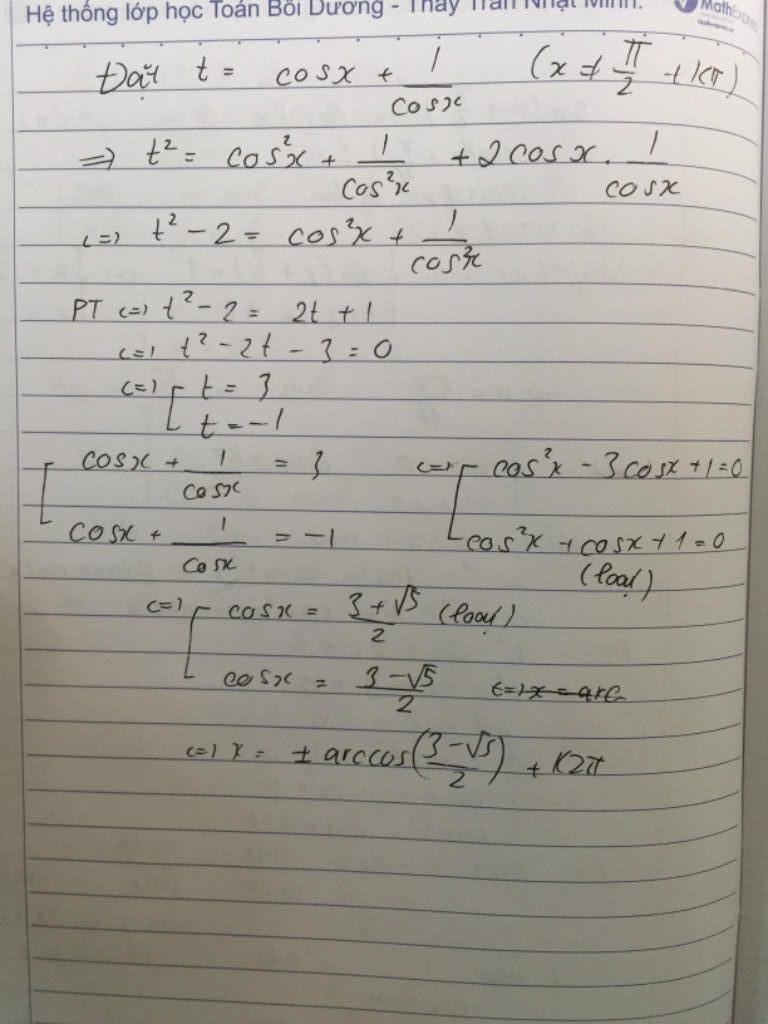 Hệ thống lớp học Toán Bồi Dưỡng - Thầy Trần Nhật Minh.
MathExpress
Đặt t = cosx + 1/cosx (x ≠ π/2 + kπ)
=> t² = cos²x + 1/cos²x + 2cosx . 1/cosx
<=> t² - 2 = cos²x + 1/cos²x
PT <=> t² - 2 = 2t + 1
<=> t² - 2t - 3 = 0
<=> [ t = 3
t = -1
[ cosx + 1/cosx = 3 <=> [ cos²x - 3cosx + 1 = 0
cosx + 1/cosx = -1 cos²x + cosx + 1 = 0
(loại)
<=> [ cosx = (3 + √5)/2 (loại)
cosx = (3 - √5)/2 <=> x = arc
<=> x = ± arccos((3 - √5)/2) + k2π